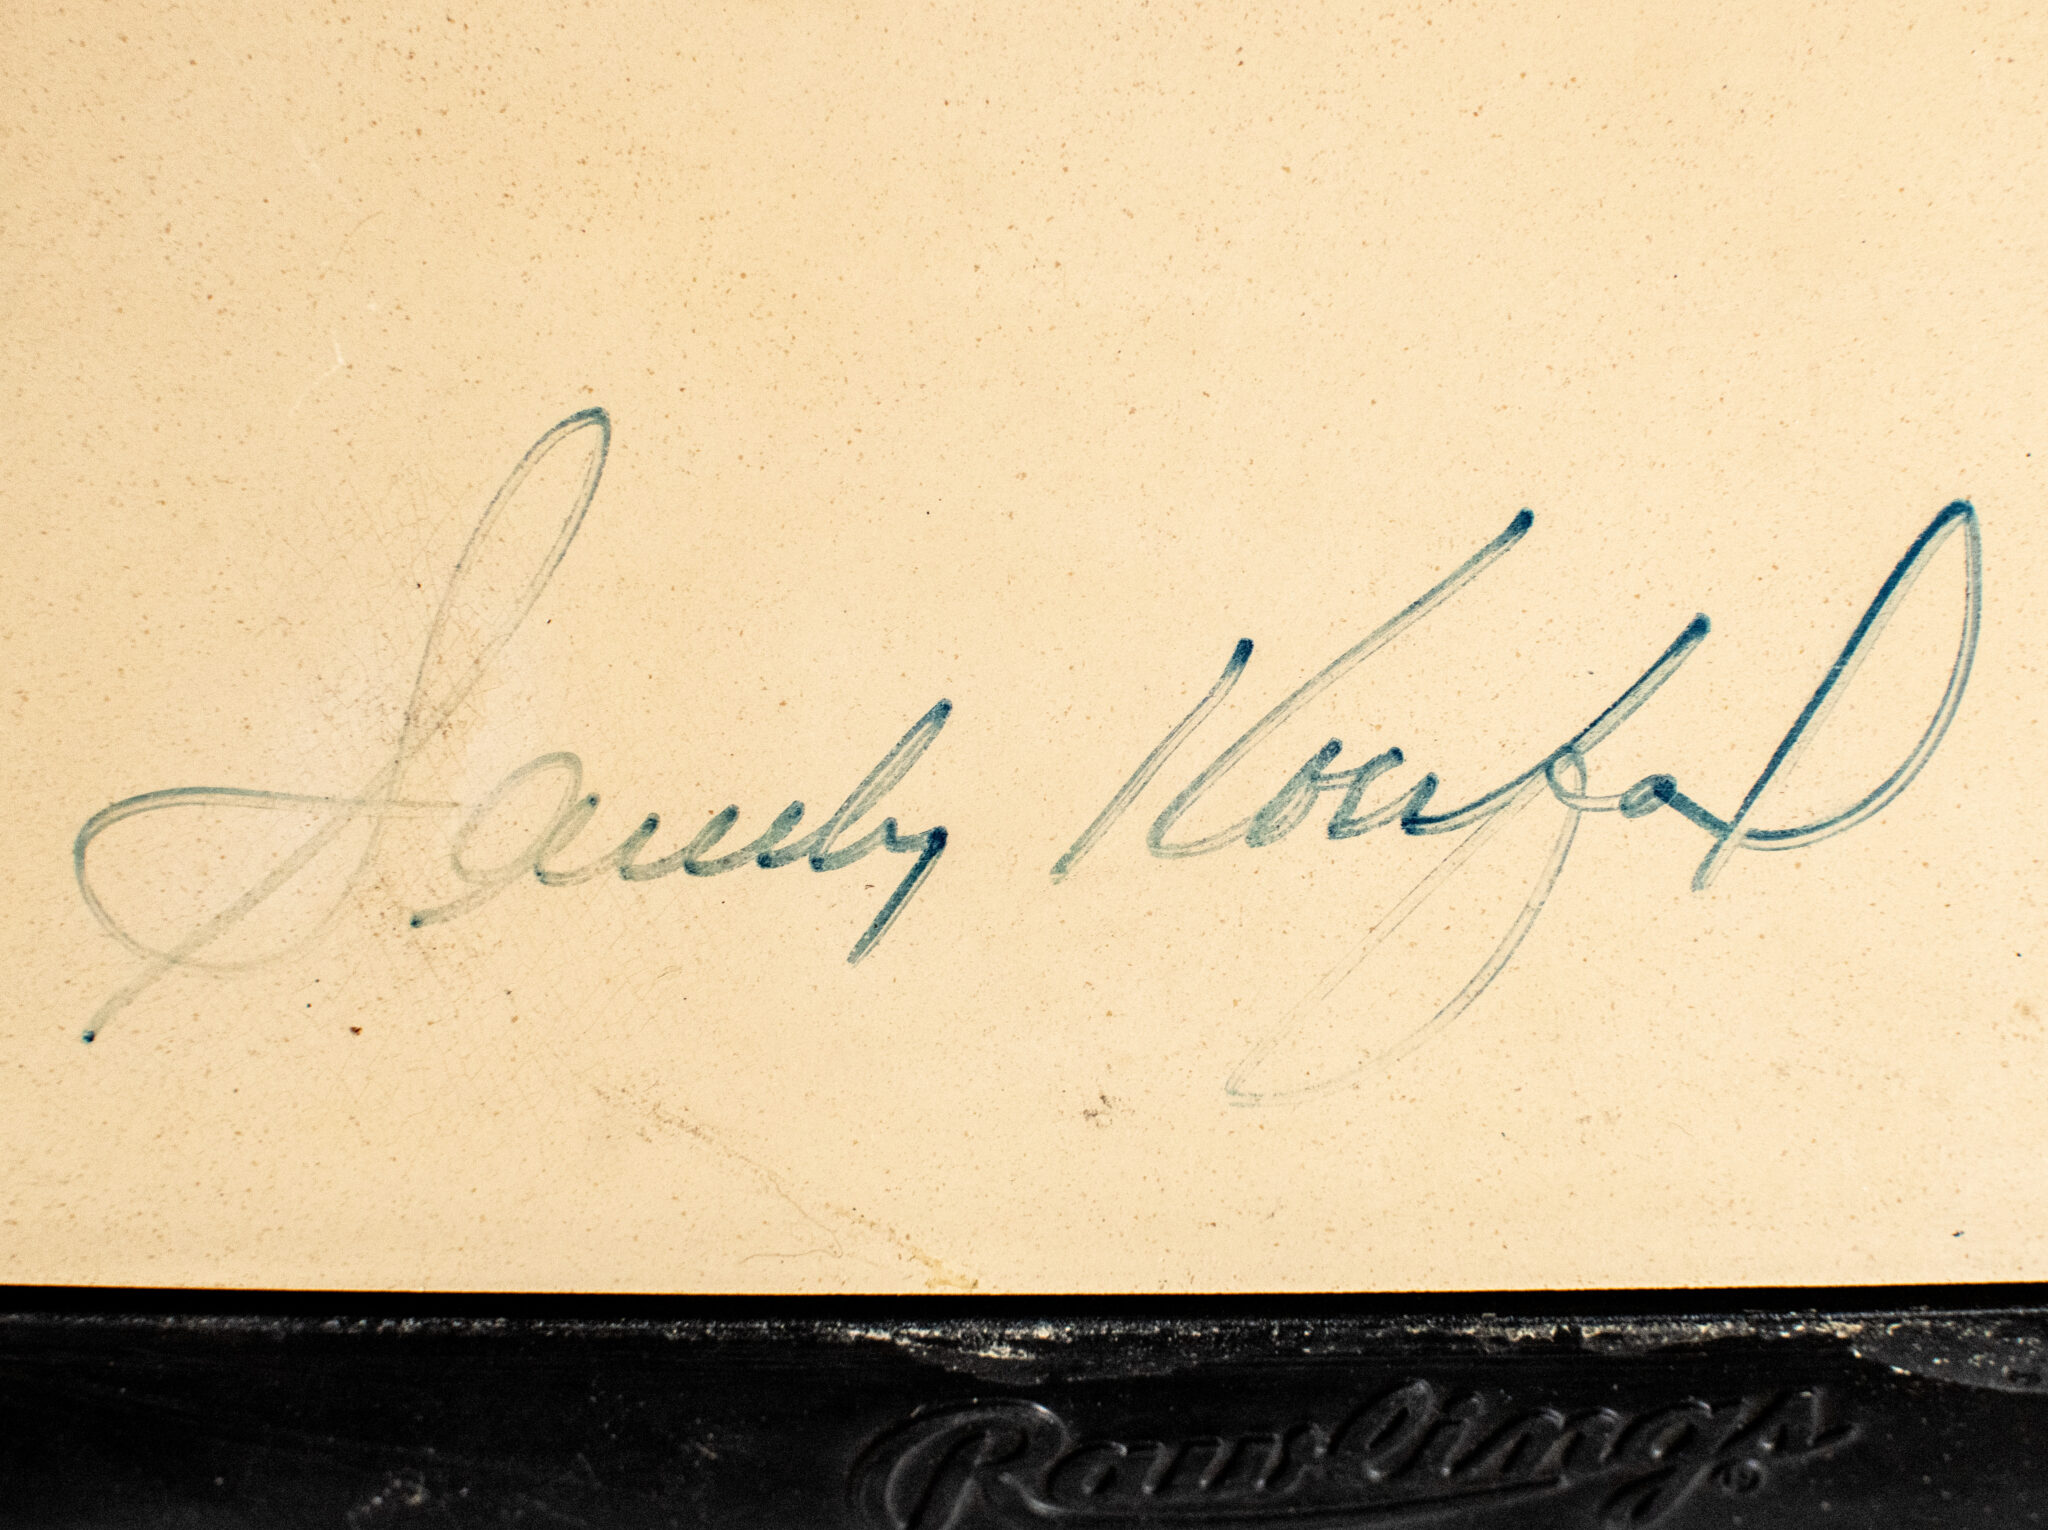 Sandy Koufax
Rawlings®